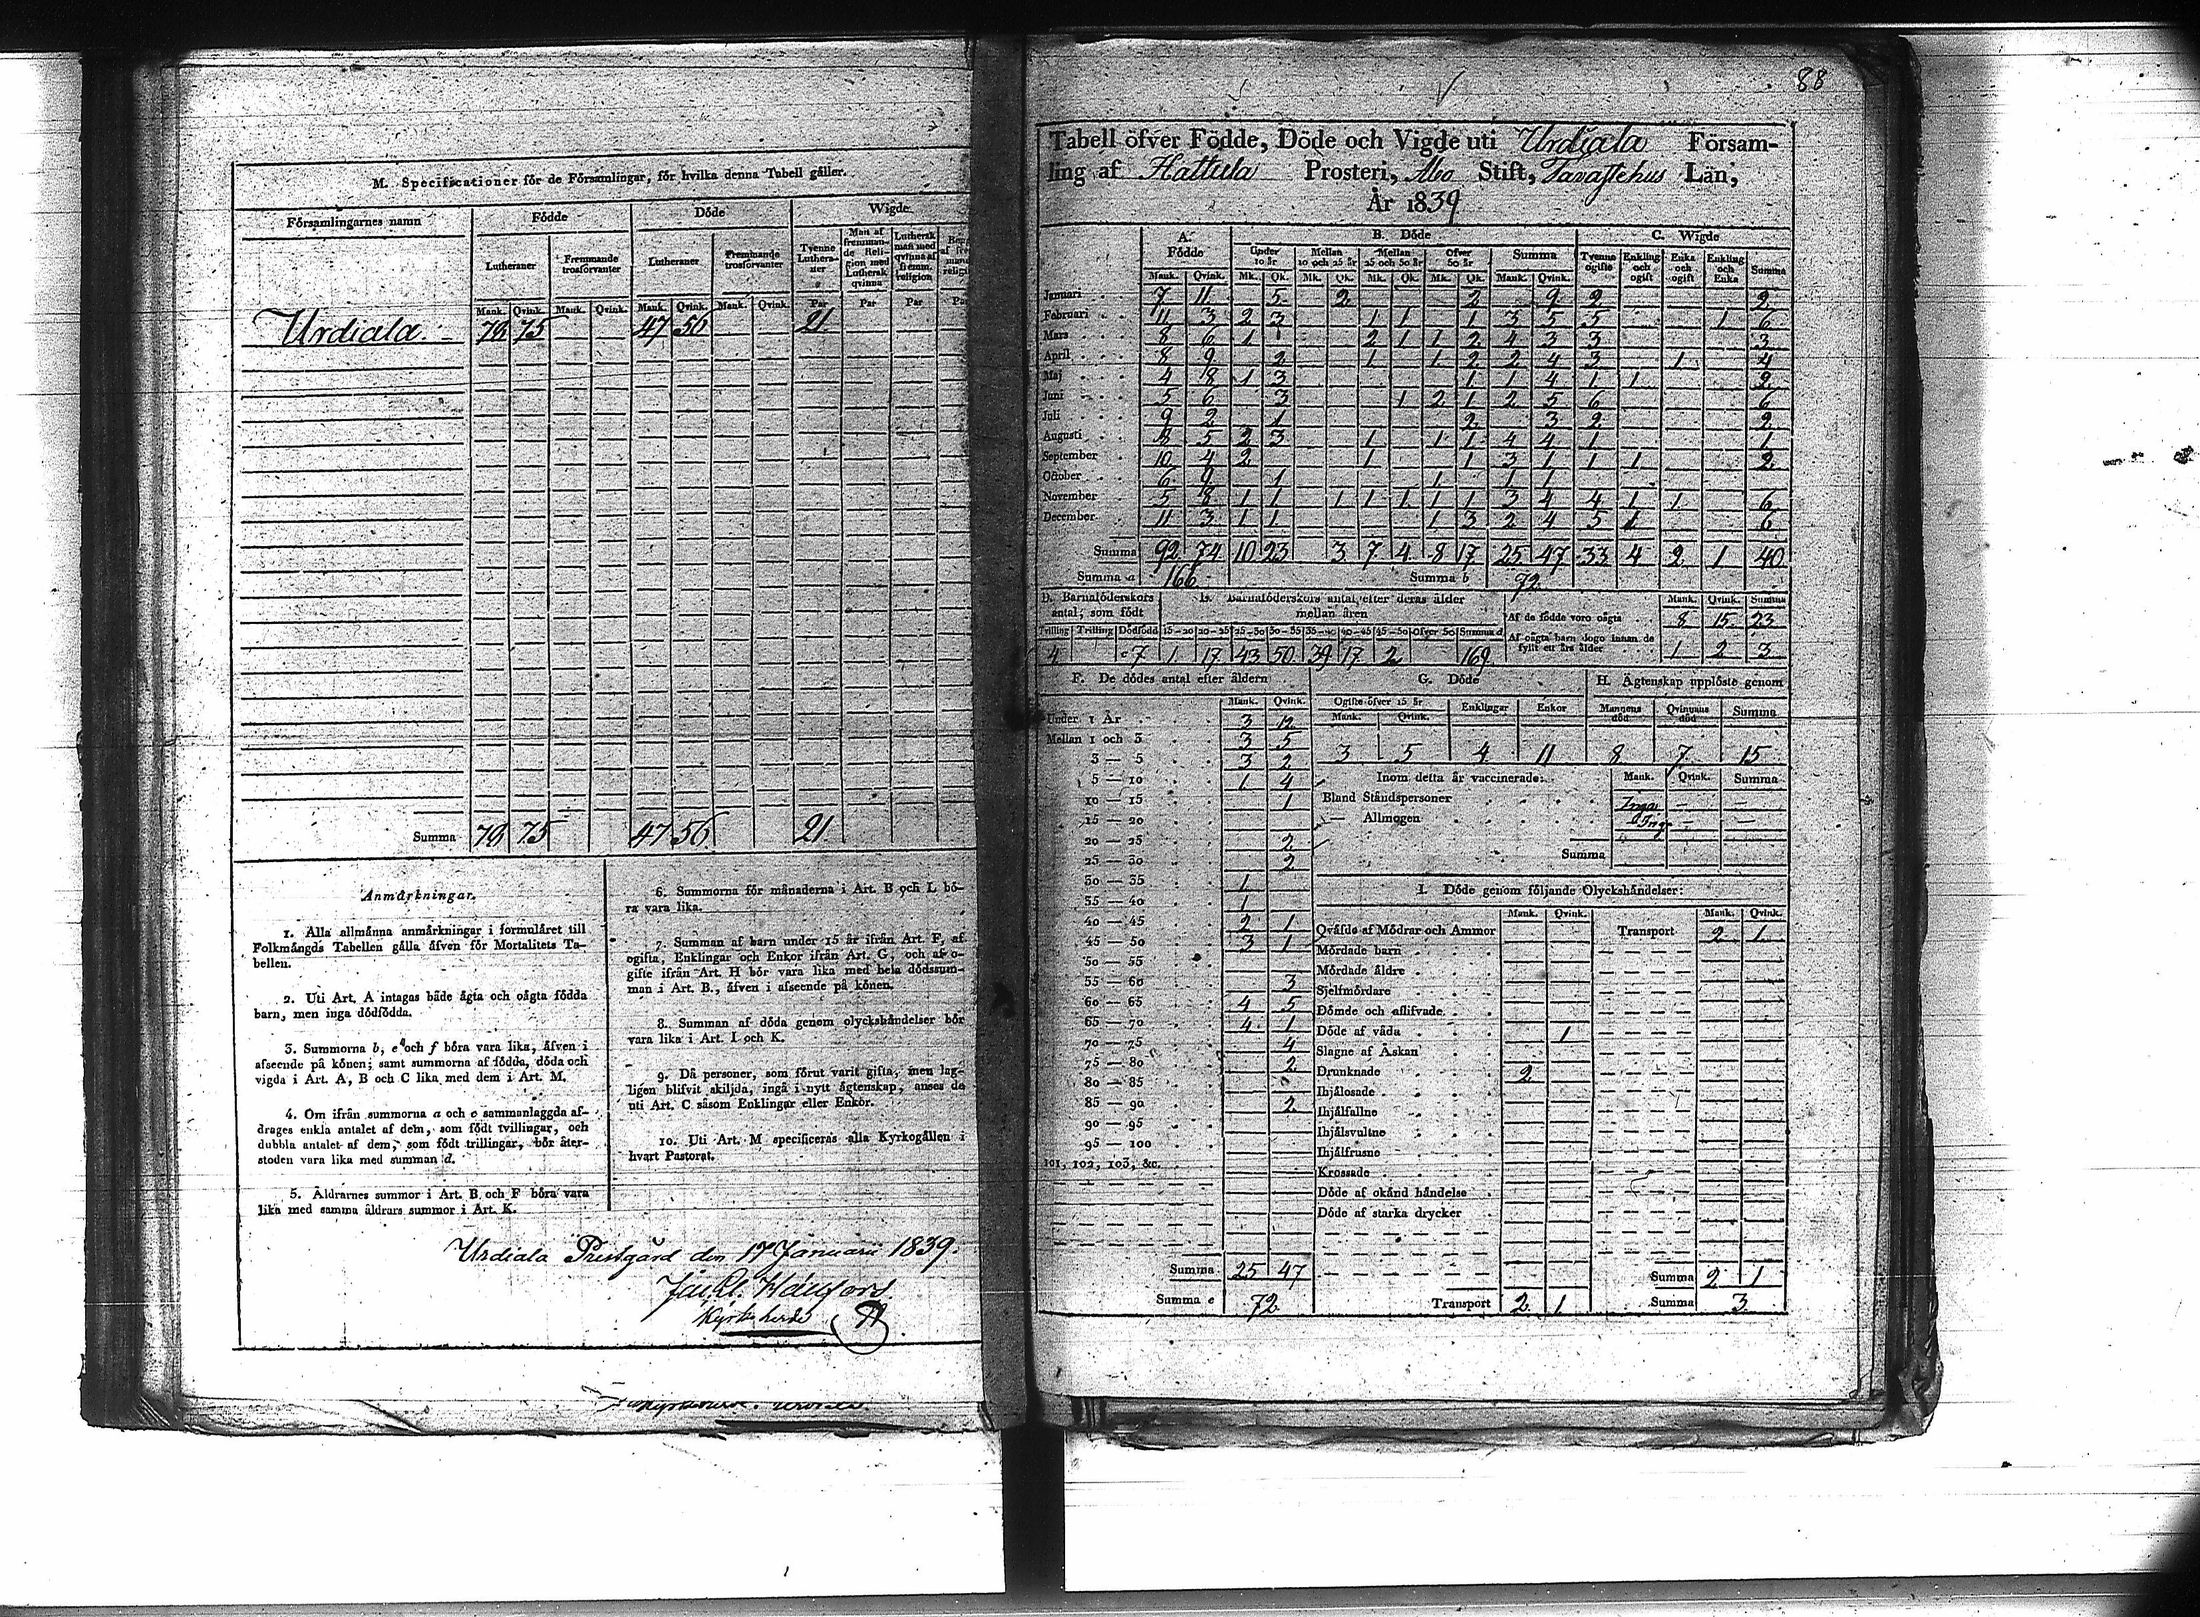 M. Specificationer för de Församlingar, för hvilka denna Tabell gäller.
Församlingarnes namn Födde Döde Wigde
Lutheraner Fremmande trosförvanter Lutheraner Fremmande trosförvanter Tvenne Lutheraner Man af fremmande Religion med Luthersk qvinna Luthersk man med qvinna af fremm. religion
Mank. Qvink. Mank. Qvink. Mank. Qvink. Mank. Qvink. Par Par Par
Urdiala. 79 75 47 56 21
Summa 79 75 47 56 21
Anmärkningar.
1. Alla allmänna anmärkningar i formuläret till
Folkmängds Tabellen gälla äfven för Mortalitets Ta-
bellen.
2. Uti Art. A intagas både ägta och oägta födda
barn, men inga dödfödda.
3. Summorna b, e och f böra vara lika, äfven i
afseende på könen; samt summorna af födda, döda och
vigda i Art. A, B och C lika med dem i Art. M.
4. Om ifrån summorna a och c sammanlaggda af-
drages enkla antalet af dem, som födt tvillingar, och
dubbla antalet af dem, som födt trillingar, bör åter-
stoden vara lika med summan d.
5. Åldrarnes summor i Art. B och F böra vara
lika med samma åldrars summor i Art. K.
6. Summorna för månaderna i Art. B och L bö-
ra vara lika.
7. Summan af barn under 15 år ifrån Art. F, af
ogifta, Enklingar och Enkor ifrån Art. G, och af o-
gifte ifrån Art. H bör vara lika med hela dödssum-
man i Art. B., äfven i afseende på könen.
8. Summan af döda genom olyckshändelser bör
vara lika i Art. I och K.
9. Då personer, som förut varit gifta, men lag-
ligen blifvit skiljda, ingå i nytt ägtenskap, anses de
uti Art. C såsom Enklingar eller Enkor.
10. Uti Art. M specificeras alla Kyrkogällen i
hvart Pastorat.
Urdiala Prestgård den 17 Januarii 1839.
Kyrkoherde
88
Tabell öfver Födde, Döde och Vigde uti Urdiala Försam-
ling af Hattula Prosteri, Åbo Stift, Tavastehus Län,
År 1839
A. Födde B. Döde C. Wigde
Under 10 år Mellan 10 och 25 år Mellan 25 och 50 år Öfver 50 år Summa Tvenne ogifte Enkling och ogift Enka och ogift Enkling och Enka Summa
Mank. Qvink. Mk. Qk. Mk. Qk. Mk. Qk. Mk. Qk. Mank. Qvink.
Januari 7 11 5 2 2 9 2 2
Februari 11 3 2 3 1 1 1 3 5 5 1 6
Mars 8 6 1 1 2 1 1 2 4 3 3 3
April 8 9 2 1 1 2 2 4 3 1 4
Maj 4 8 1 3 1 1 4 1 1 2
Juni 5 6 3 1 2 1 2 5 6 6
Juli 9 2 1 2 3 2 2
Augusti 8 5 2 3 1 1 1 4 4 1 1
September 10 4 2 1 1 3 1 1 1 2
October 6 9 1 1 1 1
November 5 8 1 1 1 1 1 1 1 3 4 4 1 1 6
December 11 3 1 1 1 3 2 4 5 1 6
Summa 92 74 10 23 3 7 4 8 17 25 47 33 4 2 1 40
Summa a 166 Summa b 72
D. Barnaföderskors antal, som födt
E. Barnaföderskors antal, efter deras ålder mellan åren
Tvilling Trilling Dödfödd 15-20 20-25 25-30 30-35 35-40 40-45 45-50 Öfver 50 Summa d
4 c 7 1 17 43 50 39 17 2 169
Mank. Qvink. Summa
Af de födde voro oägta 8 15 23
Af oägta barn dogo innan de fyllt ett års ålder 1 2 3
F. De dödes antal efter åldern
Mank. Qvink.
Under 1 År 3 12
Mellan 1 och 3 3 5
3 — 5 3 2
5 — 10 1 4
10 — 15 1
15 — 20
20 — 25 2
25 — 30 2
30 — 35 1
35 — 40 1
40 — 45 2 1
45 — 50 3 1
50 — 55
55 — 60 3
60 — 65 4 5
65 — 70 4 1
70 — 75 4
75 — 80 2
80 — 85
85 — 90 2
90 — 95
95 — 100
101, 102, 103, &c.
Summa 25 47
Summa e 72
G. Döde
Ogifte öfver 15 år Enklingar Enkor
Mank. Qvink.
3 5 4 11
H. Ägtenskap upplöste genom
Mannens död Qvinnans död Summa
8 7 15
Inom detta år vaccinerade: Mank. Qvink. Summa
Bland Ståndspersoner Inga
— Allmogen Inga
Summa
I. Döde genom följande Olyckshändelser:
Mank. Qvink. Mank. Qvink.
Qväfde af Mödrar och Ammor Transport 2 1
Mördade barn
Mördade äldre
Sjelfmördare
Dömde och aflifvade
Döde af våda 1
Slagne af Åskan
Drunknade 2
Ihjälosade
Ihjälfallne
Ihjälsvultne
Ihjälfrusne
Krossade
Döde af okänd händelse
Döde af starka drycker
Summa 2 1
Transport 2 1 Summa 3